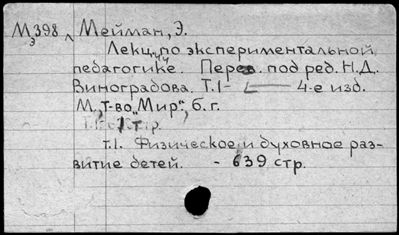 Мэ398 Мейман, Э.
Лекции по экспериментальной
педагогике. Перев. под ред. Н.Д.
Виноградова. Т. 1- 4-е изд.
М, т-во "Мир", б. г.
т.1. Физическое и духовное раз-
витие детей. - 639 стр.